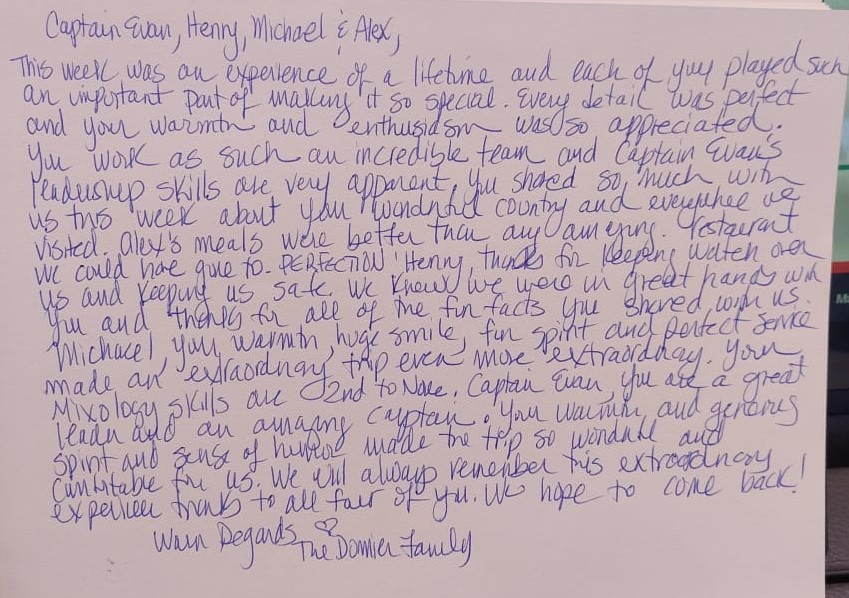 Captain Evan, Henry, Michael & Alex,
This week was an experience of a lifetime and each of you played such
an important part of making it so special. Every detail was perfect
and your warmth and enthusiasm was so appreciated.
You work as such an incredible team and Captain Evan's
leadership skills are very apparent. You shared so much with
us this week about your wonderful country and everywhere we
visited. Alex's meals were better than any amazing restaurant
we could have gone to. PERFECTION! Henry, thanks for keeping watch over
us and keeping us safe. We knew we were in great hands with
you and thanks for all of the fun facts you shared with us.
Michael, your warmth, huge smile, fun spirit and perfect service
made an extraordinary trip even more extraordinary. Your
Mixology skills are 2nd to None. Captain Evan, you are a great
leader and an amazing captain. Your warmth and generous
spirit and sense of humor made the trip so wonderful and
comfortable for us. We will always remember this extraordinary
experience thanks to all four of you. We hope to come back!
Warm Regards ♡
The Domier Family